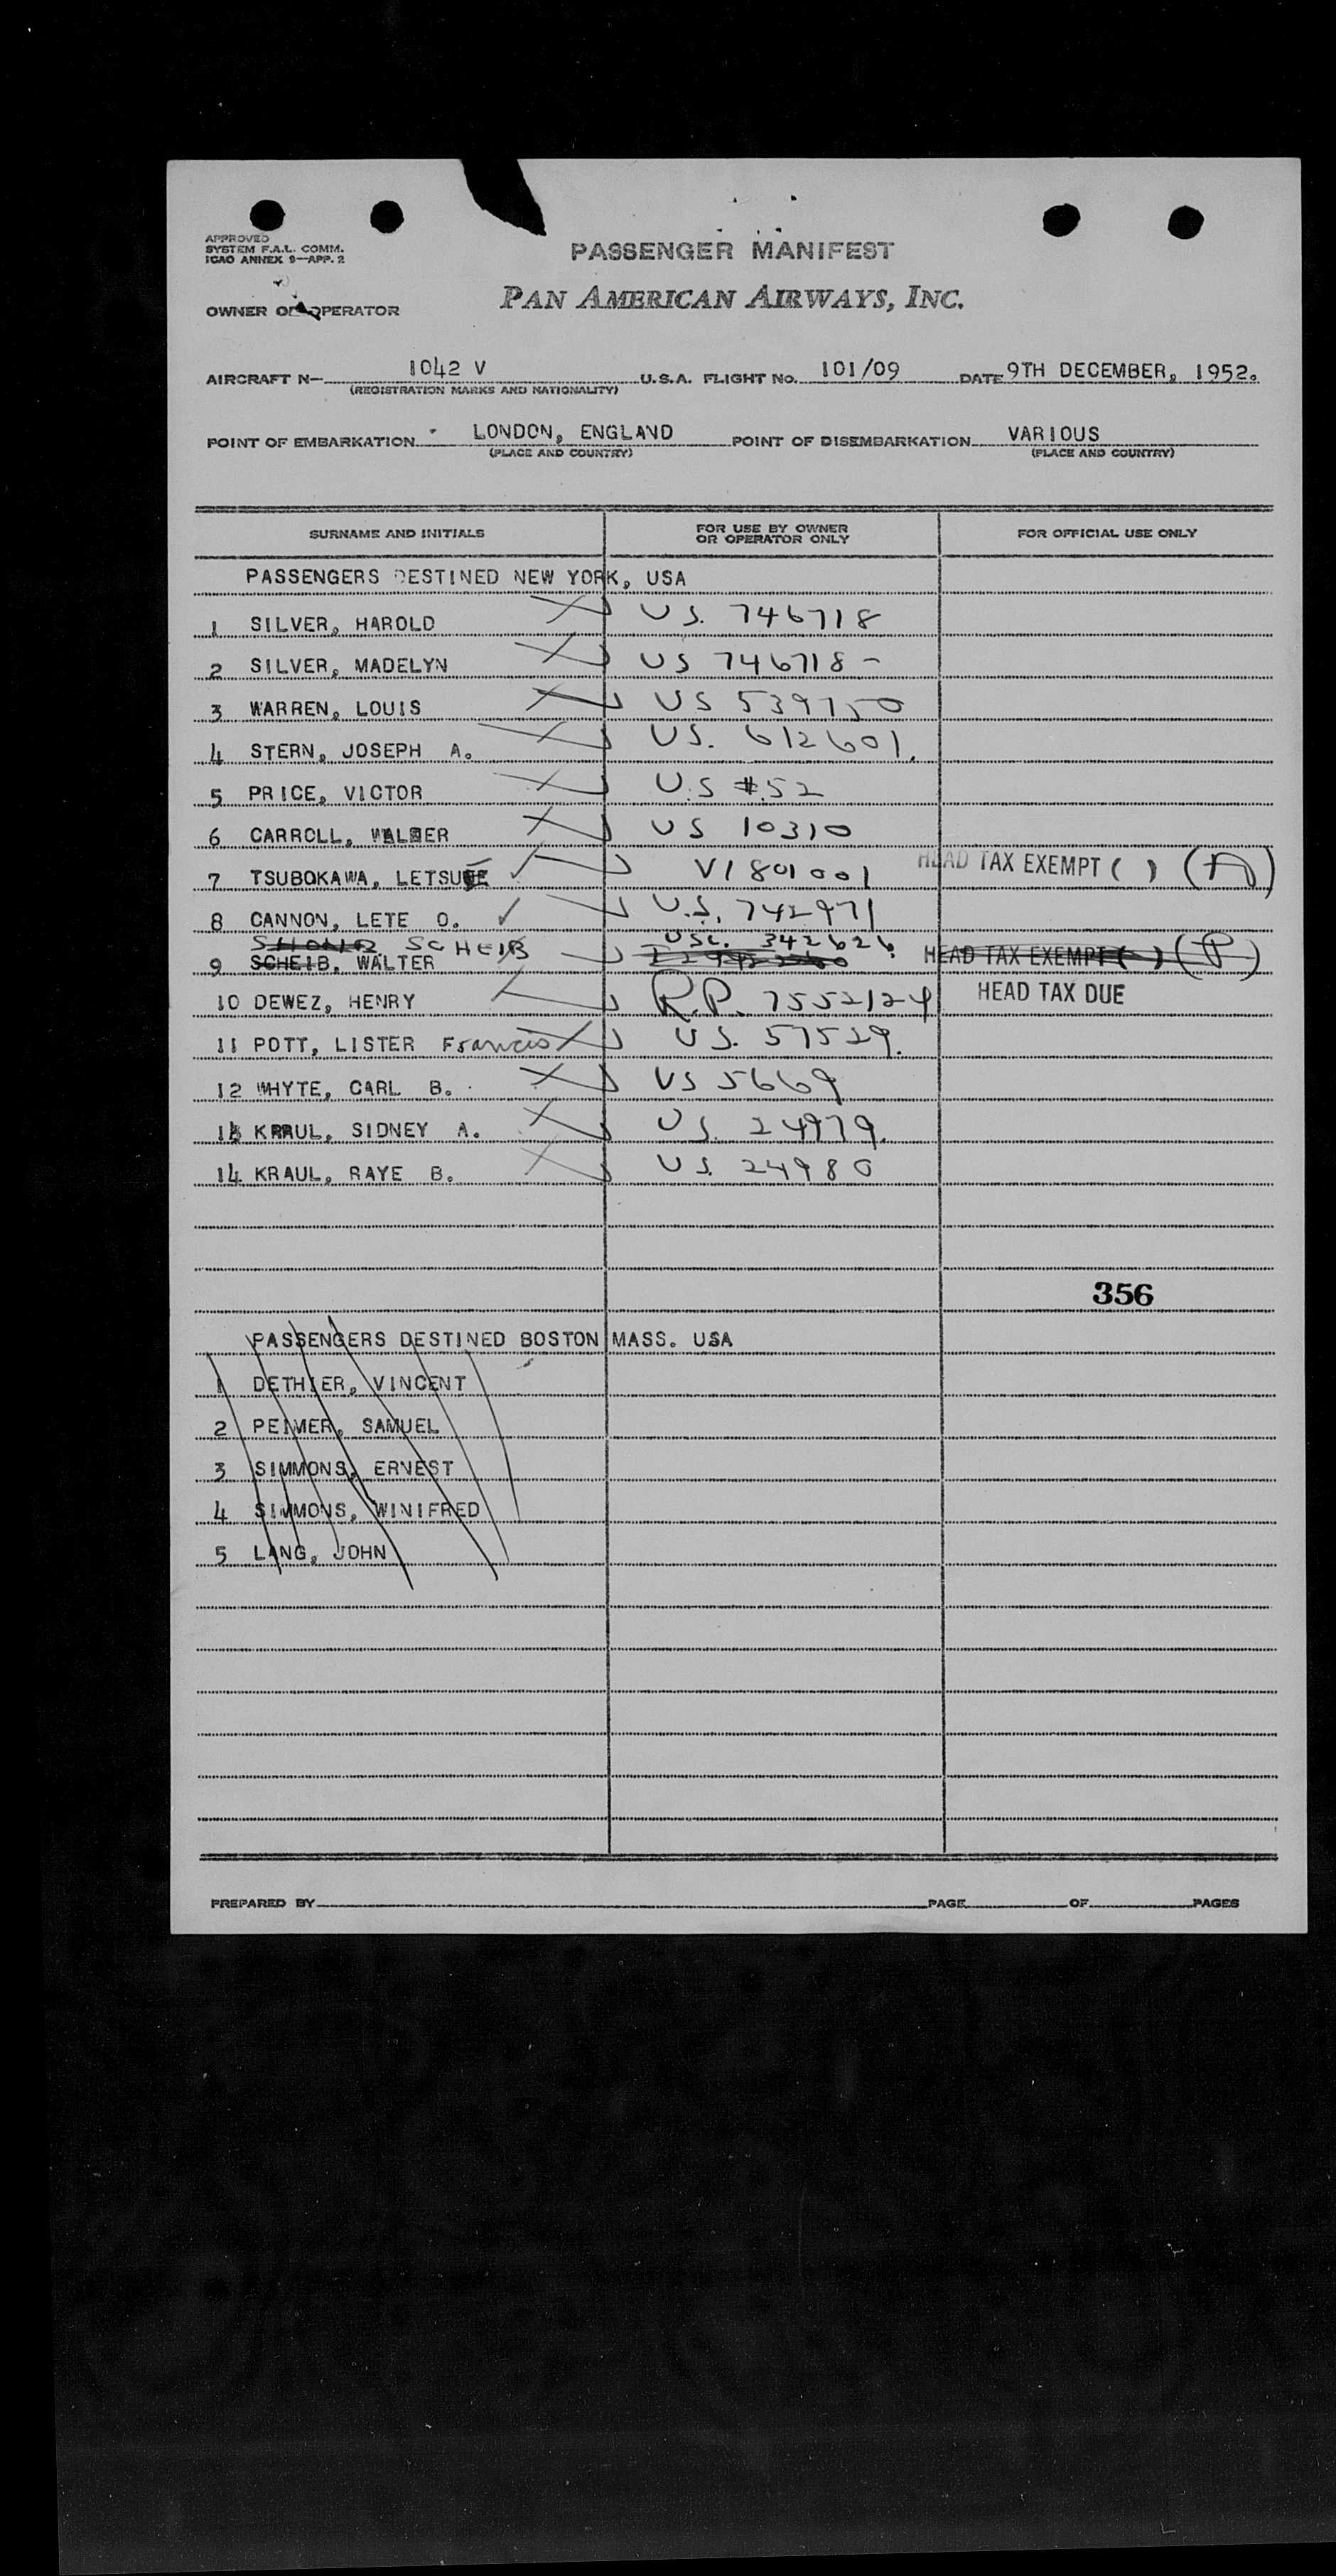 APPROVED
SYSTEM F.A.L. COMM.
ICAO ANNEX 9—APP. 2
PASSENGER MANIFEST
OWNER OR OPERATOR PAN AMERICAN AIRWAYS, INC.
AIRCRAFT N— 1042 V U.S.A. FLIGHT NO. 101/09 DATE 9TH DECEMBER, 1952.
(REGISTRATION MARKS AND NATIONALITY)
POINT OF EMBARKATION LONDON, ENGLAND POINT OF DISEMBARKATION VARIOUS
(PLACE AND COUNTRY) (PLACE AND COUNTRY)
SURNAME AND INITIALS FOR USE BY OWNER OR OPERATOR ONLY FOR OFFICIAL USE ONLY
PASSENGERS DESTINED NEW YORK, USA
1 SILVER, HAROLD US. 746718
2 SILVER, MADELYN US 746718 -
3 WARREN, LOUIS US 539750
4 STERN, JOSEPH A. US. 612601.
5 PRICE, VICTOR U.S #52
6 CARROLL, US 10310
7 TSUBOKAWA, V1801001 HEAD TAX EXEMPT ( ) (A)
8 CANNON, LETE O. U.S. 742971
SCHEIB USC. 342626
9 SCHEIB, WALTER HEAD TAX EXEMPT ( ) (P)
10 DEWEZ, HENRY R.P. 7552124 HEAD TAX DUE
11 POTT, LISTER Francis US. 57529.
12 WHYTE, CARL B. US 5669
13 KRAUL, SIDNEY A. US. 24979.
14 KRAUL, RAYE B. US. 24980
356
PASSENGERS DESTINED BOSTON MASS. USA
1 DETHIER, VINCENT
2 PEIMER, SAMUEL
3 SIMMONS, ERNEST
4 SIMMONS, WINIFRED
5 LANG, JOHN
PREPARED BY PAGE OF PAGES